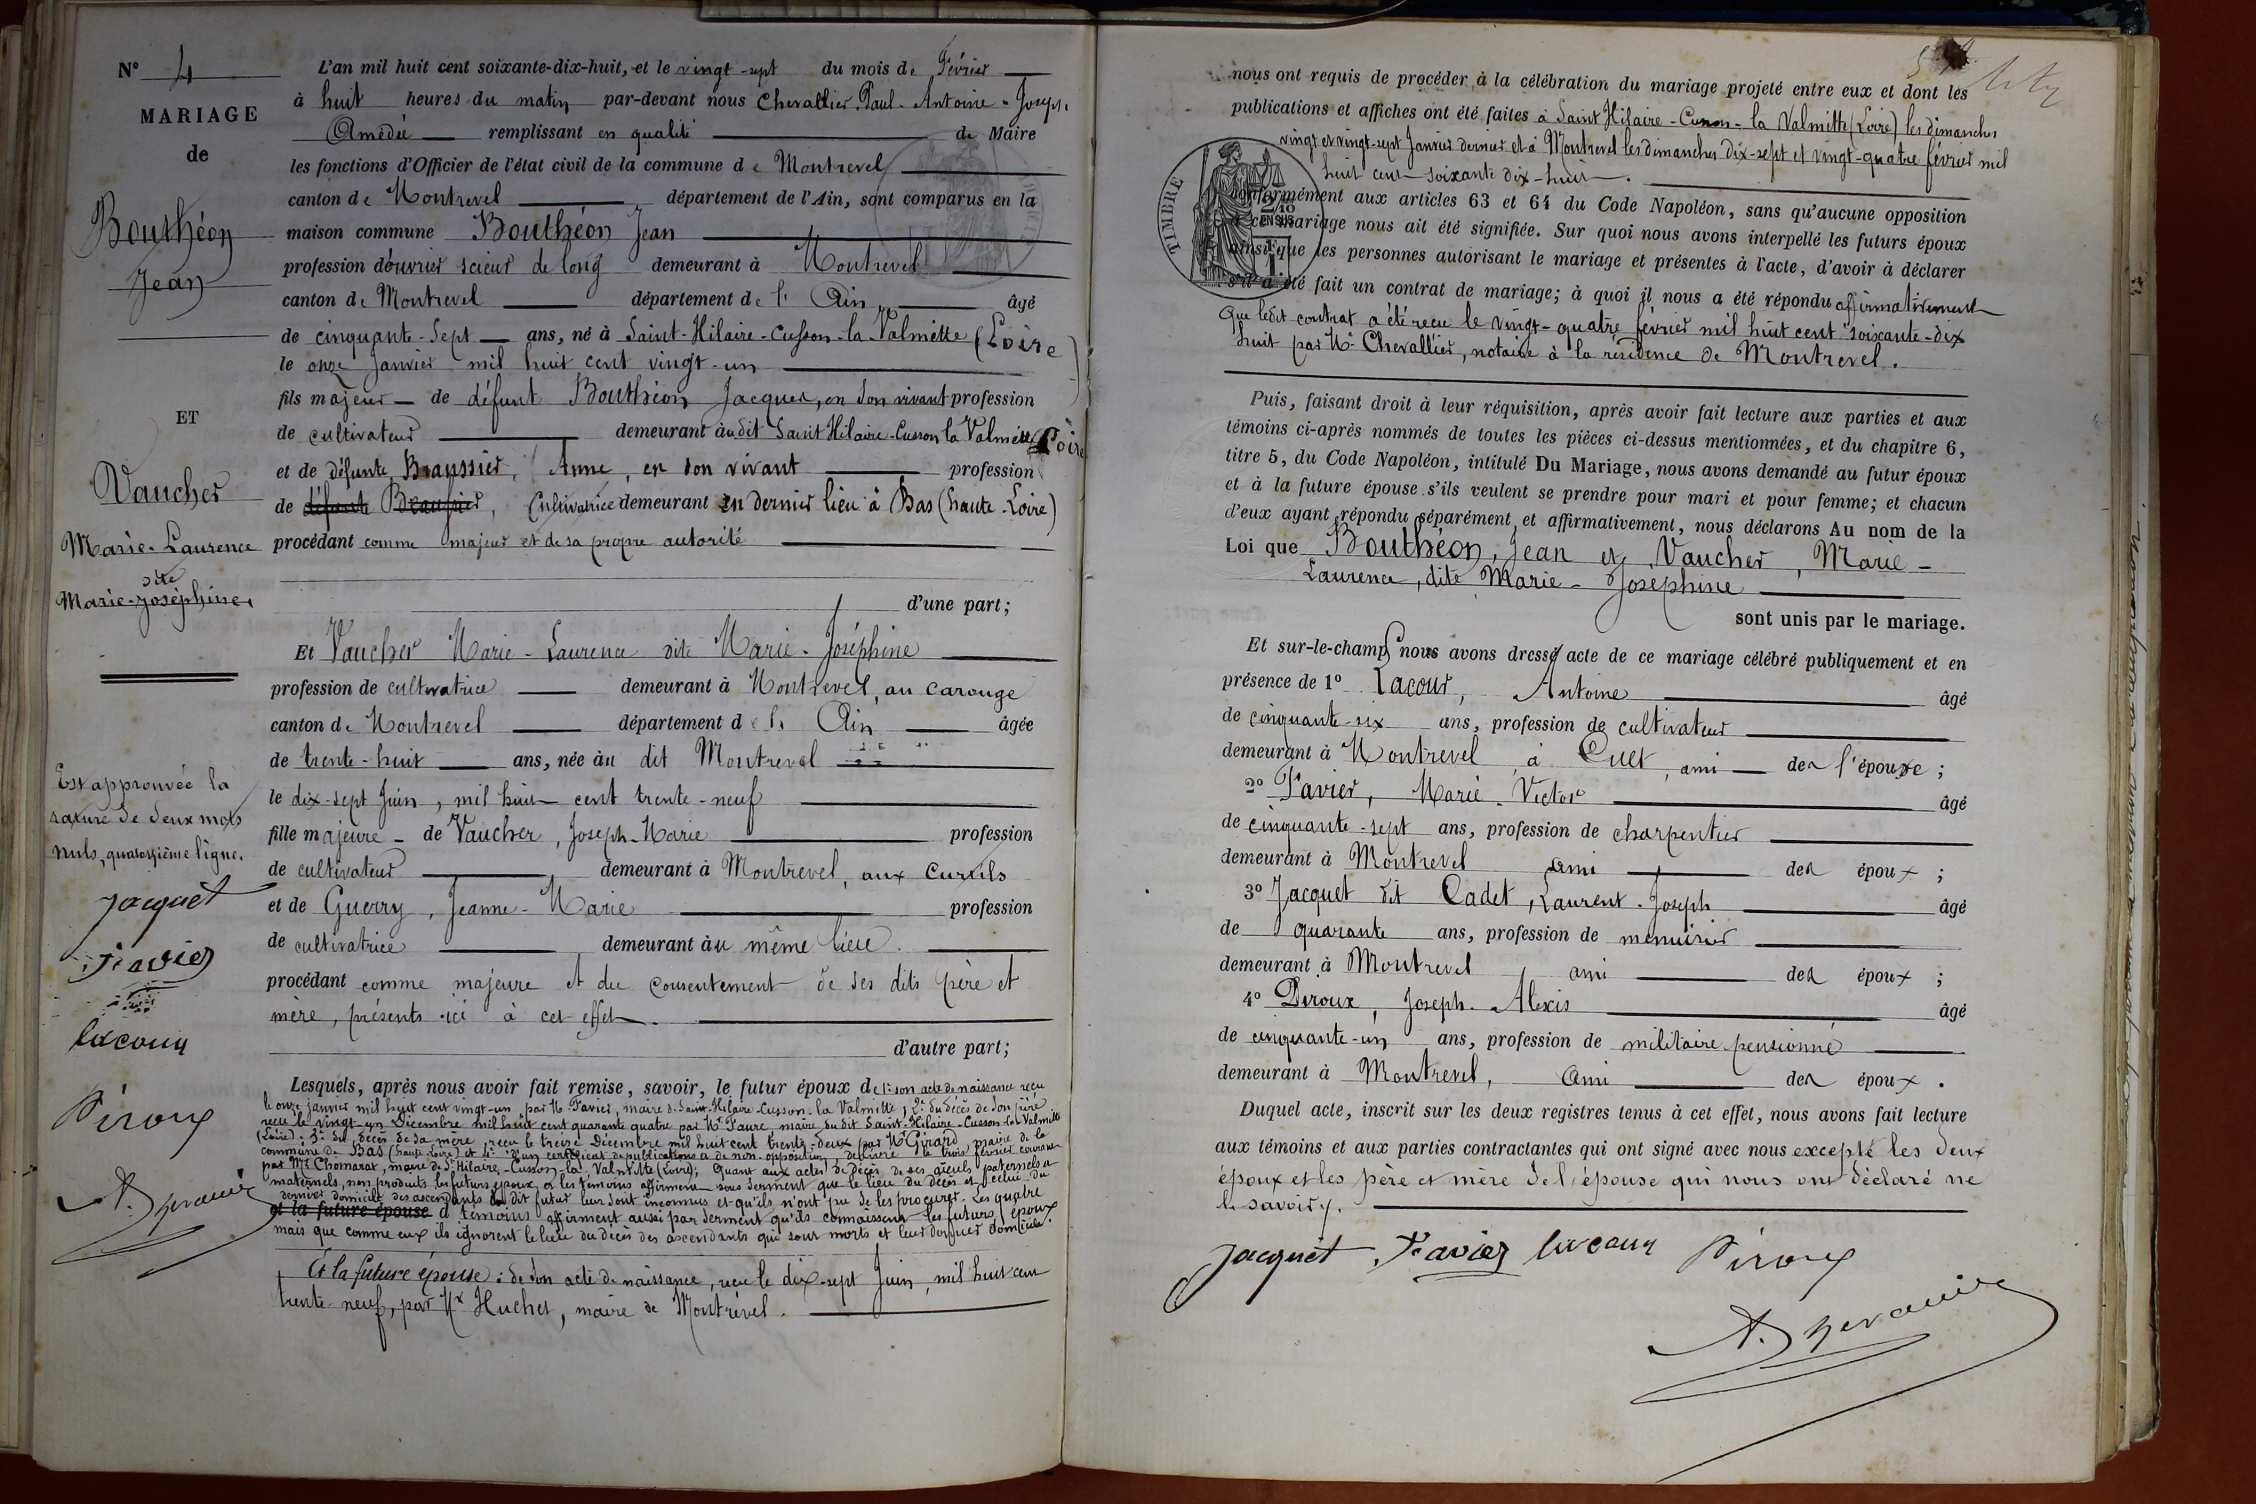 N° 4
MARIAGE
de
Bouthéon
Jean
ET
Vaucher
Marie-Laurence
dite
Marie-Joséphine
Est approuvée la
rature de deux mots
nuls, quatorzième ligne.
Jacquet
Favier
Lacour
Piroux
L'an mil huit cent soixante-dix-huit, et le vingt-sept du mois de Février
à huit heures du matin par-devant nous Chevallier Paul-Antoine-Joseph
Amédée remplissant en qualité de Maire
les fonctions d'Officier de l'état civil de la commune de Montrevel
canton de Montrevel département de l'Ain, sont comparus en la
maison commune Bouthéon Jean
profession d'ouvrier scieur de long demeurant à Montrevel
canton de Montrevel département de l'Ain âgé
de cinquante-sept ans, né à Saint-Hilaire-Cusson-la-Valmitte (Loire)
le onze Janvier mil huit cent vingt-un
fils majeur de défunt Bouthéon Jacques, en son vivant profession
de cultivateur demeurant audit Saint Hilaire-Cusson la Valmitte Loire
et de défunte Braussier, Anne, en son vivant profession
de défunte Braussier, Cultivatrice demeurant en dernier lieu à Bas (haute-Loire)
procédant comme majeur et de sa propre autorité
d'une part;
Et Vaucher Marie-Laurence dite Marie-Joséphine
profession de cultivatrice demeurant à Montrevel, au Carouge
canton de Montrevel département de l'Ain âgée
de trente-huit ans, née au dit Montrevel
le dix-sept Juin, mil huit cent trente-neuf
fille majeure de Vaucher, Joseph-Marie profession
de cultivateur demeurant à Montrevel, aux Curtils
et de Guerry, Jeanne-Marie profession
de cultivatrice demeurant au même lieu.
procédant comme majeure et du consentement de ses dits père et
mère, présents ici à cet effet.
d'autre part;
Lesquels, après nous avoir fait remise, savoir, le futur époux de 1° son acte de naissance reçu
le onze janvier mil huit cent vingt-un par Mr Favier, maire de Saint-Hilaire-Cusson-la Valmitte; 2° du décès de son père
reçu le vingt-un Décembre mil huit cent quarante quatre par Mr Faure, maire du dit Saint-Hilaire-Cusson-la Valmitte
(Loire): 3° du décès de sa mère, reçu le treize Décembre mil huit cent trente-deux par Mr Girard, maire de la
commune de Bas (haute Loire) et 4° d'un certificat de publications et de non-opposition, délivré le trois février courant
par Mr Chomarat, maire de St Hilaire-Cusson-la Valmitte (Loire); Quant aux actes de Décès de ses aïeuls paternels et
maternels, non produits, les futurs époux et les témoins affirment sous serment que le lieu du décès et celui du
dernier domicile des ascendants du dit futur leur sont inconnus et qu'ils n'ont pu se les procurer. Les quatre
et la future épouse d témoins affirment aussi par serment qu'ils connaissent les futurs époux
mais que comme eux ils ignorent le lieu du décès des ascendants qui sont morts et leur dernier domicile.
Et la future épouse: de son acte de naissance, reçu le dix-sept Juin, mil huit cent
trente neuf, par Mr Huchet, maire de Montrevel.
nous ont requis de procéder à la célébration du mariage projeté entre eux et dont les
publications et affiches ont été faites à Saint Hilaire-Cusson-la Valmitte (Loire) les dimanches
vingt et vingt-sept Janvier dernier et à Montrevel les dimanches dix-sept et vingt-quatre février mil
huit cent soixante dix-huit.
TIMBRE
conformément aux articles 63 et 64 du Code Napoléon, sans qu'aucune opposition
à ce mariage nous ait été signifiée. Sur quoi nous avons interpellé les futurs époux
ainsi que les personnes autorisant le mariage et présentes à l'acte, d'avoir à déclarer
s'il a été fait un contrat de mariage; à quoi il nous a été répondu affirmativement
Que ledit contrat a été reçu le vingt-quatre février mil huit cent soixante-dix
huit par Me Chevallier, notaire à la résidence de Montrevel.
Puis, faisant droit à leur réquisition, après avoir fait lecture aux parties et aux
témoins ci-après nommés de toutes les pièces ci-dessus mentionnées, et du chapitre 6,
titre 5, du Code Napoléon, intitulé Du Mariage, nous avons demandé au futur époux
et à la future épouse s'ils veulent se prendre pour mari et pour femme; et chacun
d'eux ayant répondu séparément et affirmativement, nous déclarons Au nom de la
Loi que Bouthéon, Jean et Vaucher, Marie-
Laurence, dite Marie-Joséphine
sont unis par le mariage.
Et sur-le-champ nous avons dressé acte de ce mariage célébré publiquement et en
présence de 1° Lacour, Antoine âgé
de cinquante-six ans, profession de cultivateur
demeurant à Montrevel à Cuet, ami de l'épouse;
2° Favier, Marie-Victor âgé
de cinquante-sept ans, profession de charpentier
demeurant à Montrevel ami des époux;
3° Jacquet dit Cadet, Laurent-Joseph âgé
de quarante ans, profession de menuisier
demeurant à Montrevel, ami des époux;
4° Piroux, Joseph-Alexis âgé
de cinquante-un ans, profession de militaire pensionné
demeurant à Montrevel, ami des époux.
Duquel acte, inscrit sur les deux registres tenus à cet effet, nous avons fait lecture
aux témoins et aux parties contractantes qui ont signé avec nous excepté les deux
époux et les père et mère de l'épouse qui nous ont déclaré ne
le savoir.
Jacquet Favier Lacour Piroux